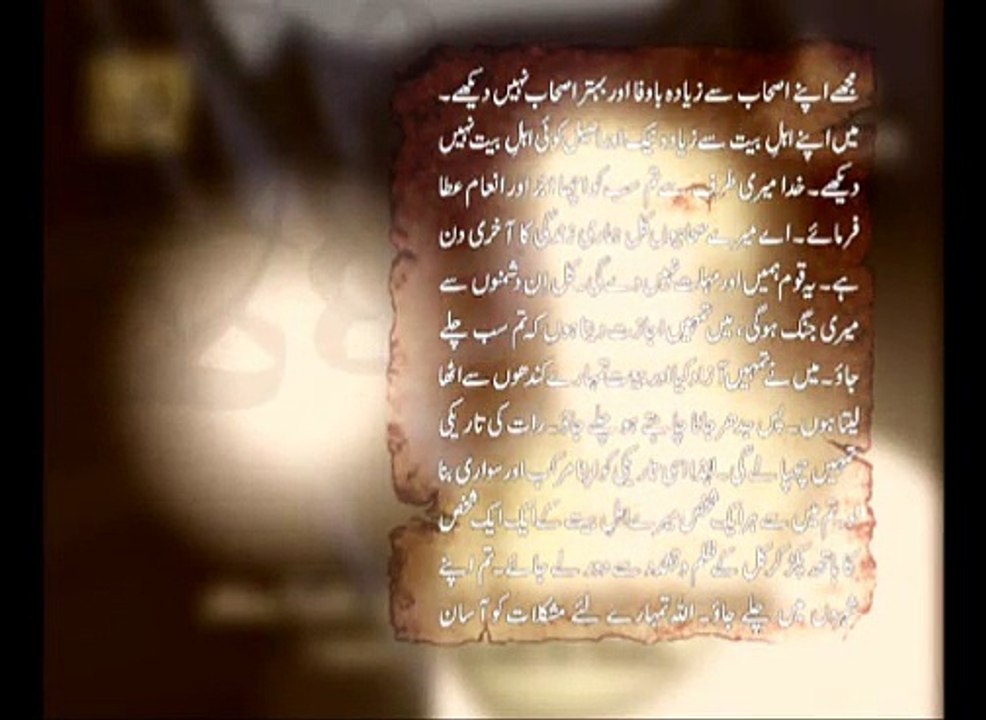 مجھے اپنے اصحاب سے زیادہ باوفا اور بہتر اصحاب نہیں دیکھے۔
میں اپنے اہل بیت سے زیادہ نیک اور اصیل کوئی اہل بیت نہیں
دیکھے۔ خدا میری طرف سے تم سب کو اچھا اجر اور انعام عطا
فرمائے۔ اے میرے کل ہماری زندگی کا آخری دن
ہے۔ یہ قوم ہمیں اور مہلت نہیں دے گی۔ کل ان دشمنوں سے
میری جنگ ہوگی، میں تمہیں اجازت دیتا ہوں کہ تم سب چلے
جاؤ۔ میں نے تمہیں آزاد کیا اور بیعت تمہارے کندھوں سے اٹھا
لیتا ہوں۔ پس جدھر جانا چاہتے ہو چلے جاؤ۔ رات کی تاریکی
تمہیں چھپا لے گی۔ لہٰذا اسی تاریکی کو اپنا مرکب اور سواری بنا
لو۔ تم میں سے ہر ایک شخص میرے اہل بیت کے ایک ایک شخص
کا ہاتھ پکڑ کر کل کے ظلم و تشدد سے دور لے جائے۔ تم اپنے
شہروں میں چلے جاؤ۔ اللہ تمہارے لئے مشکلات کو آسان